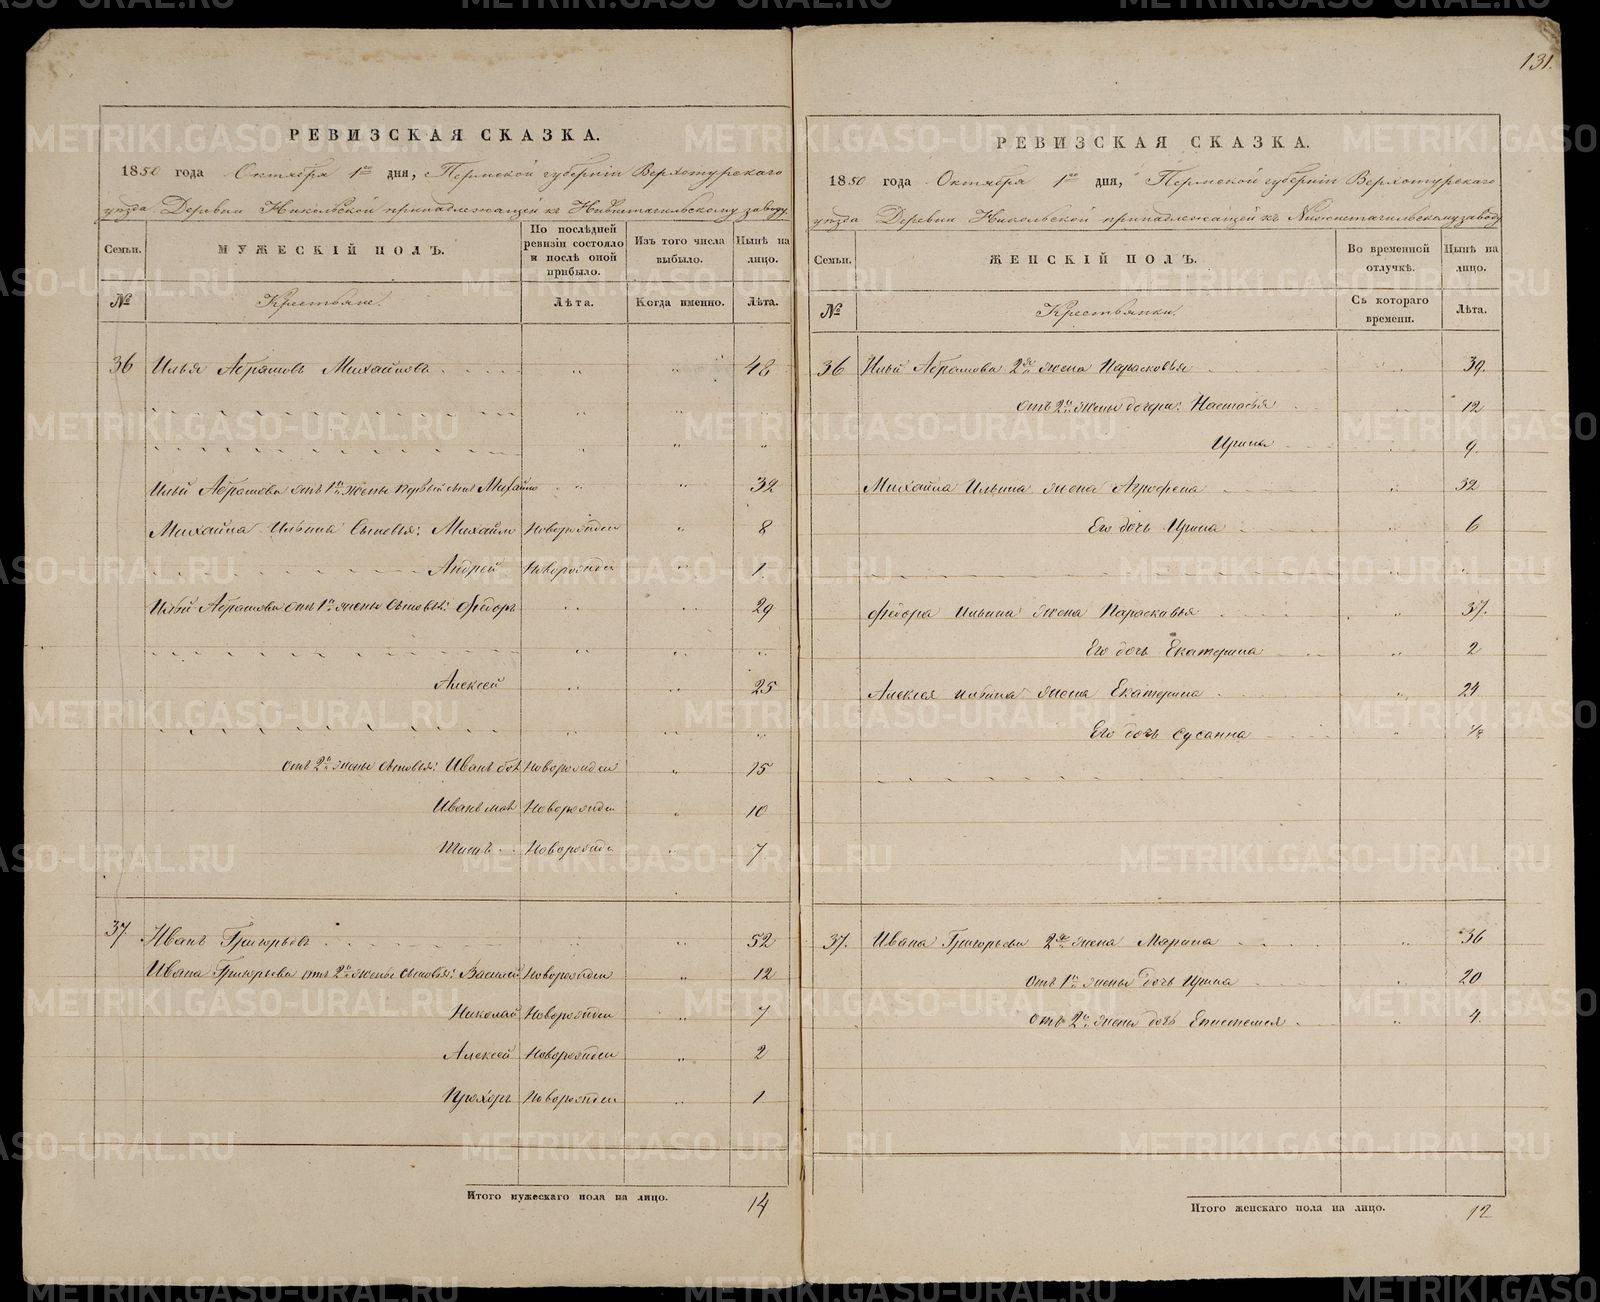 131.
РЕВИЗСКАЯ СКАЗКА.
1850 года Октября 1го дня, Пермской губерніи Верхотурскаго
уѣзда Деревни Никольской принадлежащей къ Нижнетагильскому заводу
Семьи.
МУЖЕСКІЙ ПОЛЪ.
По послѣдней ревизіи состояло и послѣ оной прибыло.
Изъ того числа выбыло.
Нынѣ на лицо.
№
Крестьяне.
Лѣта.
Когда именно.
Лѣта.
36 Илья Абрамовъ Михайловъ 48
Ильи Абрамова отъ 1й жены первый сынъ Михайло 32
Михайла Ильина Сыновья: Михайло Новорожден 8
Андрей Новорожден 1
Ильи Абрамова отъ 1й жены Сыновья: Федоръ 29
Алексей 25
отъ 2й жены Сыновья: Иванъ бол Новорожден 15
Иванъ мен Новорожден 10
Титъ Новорожден 7
37 Иванъ Григорьевъ 52
Ивана Григорьева отъ 2й жены Сыновья: Василей Новорожден 12
Николай Новорожден 7
Алексей Новорожден 2
Прохоръ Новорожден 1
Итого мужескаго пола на лицо. 14
РЕВИЗСКАЯ СКАЗКА.
1850 года Октября 1го дня, Пермской губерніи Верхотурскаго
уѣзда Деревни Никольской принадлежащей къ Нижнетагильскому заводу
Семьи.
ЖЕНСКІЙ ПОЛЪ.
Во временной отлучкѣ.
Нынѣ на лицо.
№
Крестьянки.
Съ котораго времени.
Лѣта.
36 Ильи Абрамова 2я жена Парасковья 39.
отъ 2й жены дочери: Настасья 12
Ирина 9.
Михайла Ильина жена Агрофена 32
Его дочь Ирина 6
Федора Ильина жена Параскавья 37.
Его дочь Екатерина 2
Алексея Ильина жена Екатерина 24
Его дочь Сусанна 1/2
37. Ивана Григорьева 2я жена Марина 36
отъ 1й жены дочь Ирина 20
отъ 2й жены дочь Епистимея 4.
Итого женскаго пола на лицо. 12
METRIKI.GASO-URAL.RU